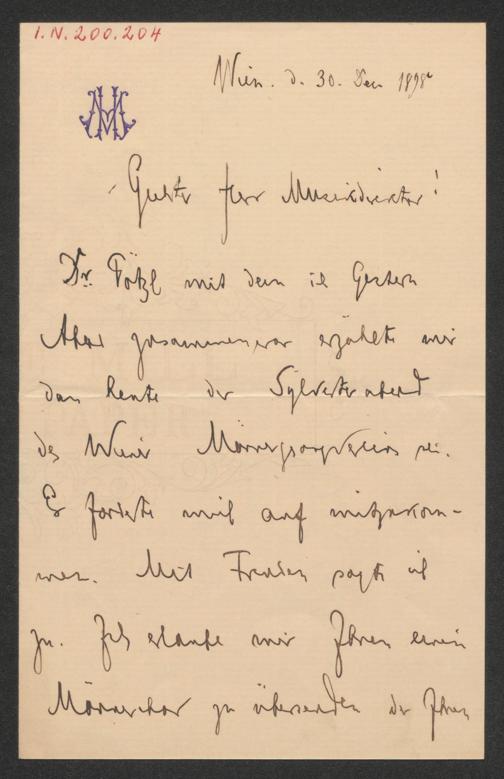 I.N.200.204
Wien. d. 30. Dec 1898
Geehrter Herr Musikdirektor!
Dr. Pötzl mit dem ich Gestern
Abend zusammenwar erzählte mir
dass heute der Sylvesterabend
des Wiener Männergesangvereins sei.
Er forderte mich auf mitzukom-
men. Mit Freuden sagte ich
zu. Ich erlaube mir Ihnen einen
Männerchor zu übersenden der Ihnen